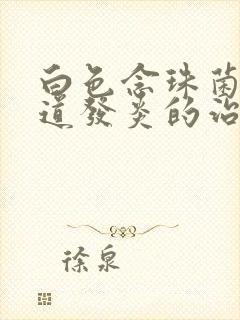 白色念珠菌
道發炎的治
徐泉